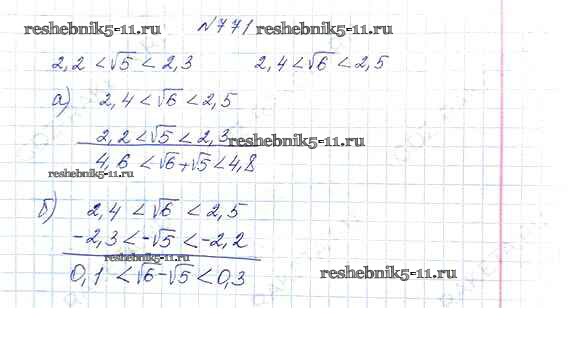 reshebnik5-11.ru №771 reshebnik5-11.ru
2,2 < √5 < 2,3 2,4 < √6 < 2,5
а) 2,4 < √6 < 2,5
2,2 < √5 < 2,3 reshebnik5-11.ru
4,6 < √6 + √5 < 4,8
reshebnik5-11.ru
б) 2,4 < √6 < 2,5
-2,3 < -√5 < -2,2
reshebnik5-11.ru
0,1 < √6 - √5 < 0,3 reshebnik5-11.ru